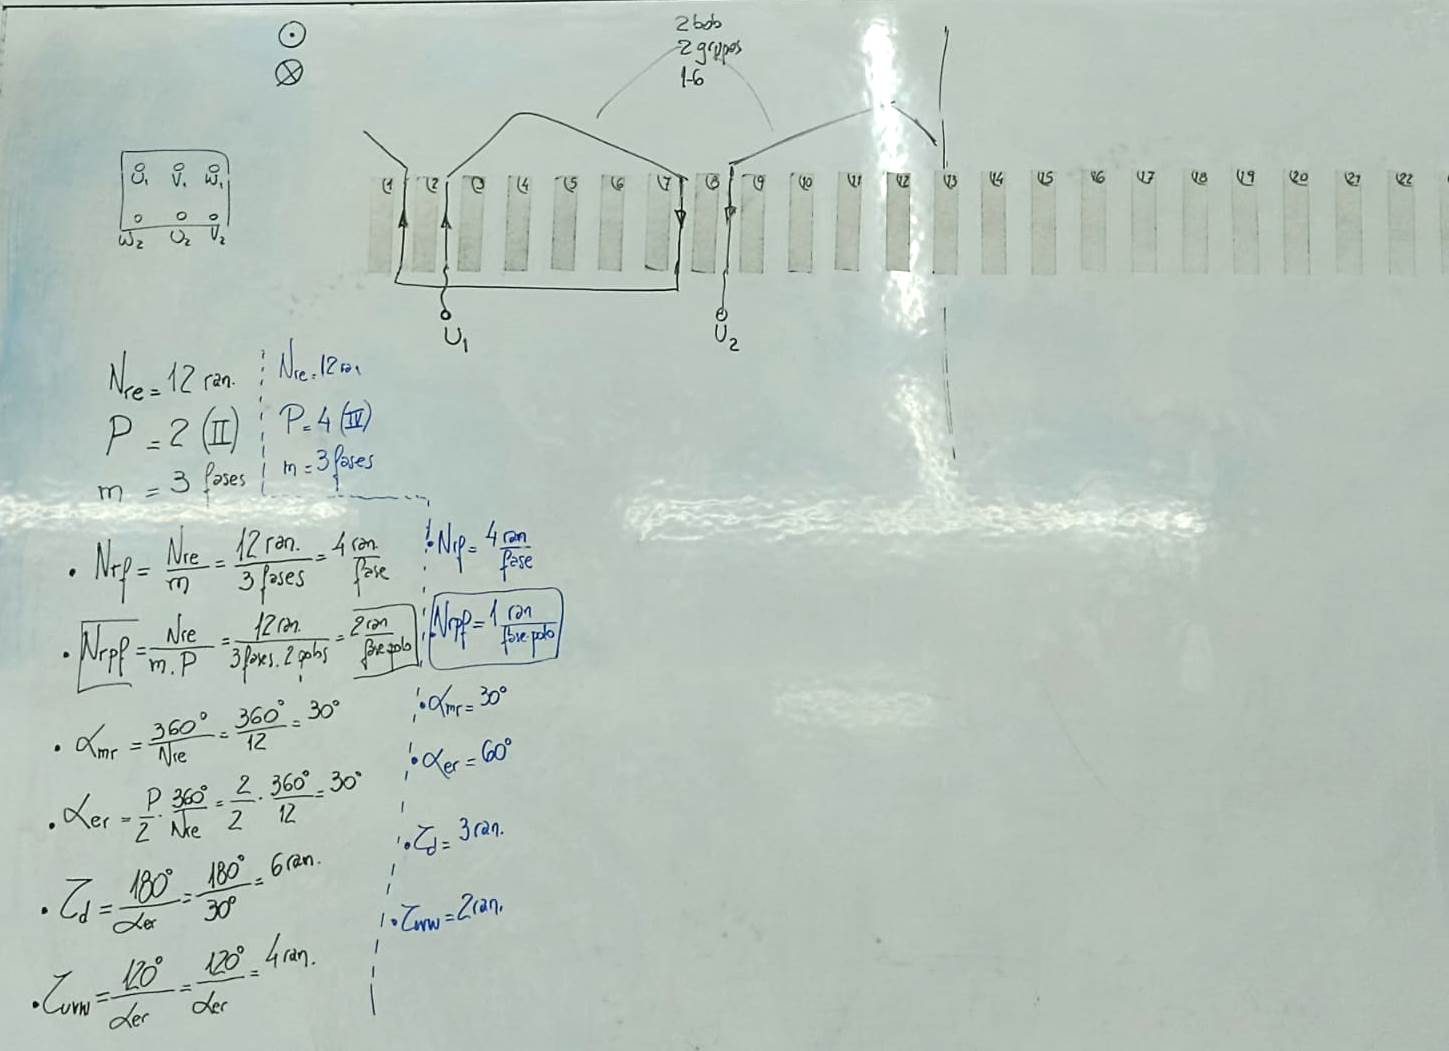 2 bob
2 grupos
1-6
U₁ V₁ W₁
W₂ U₂ V₂
1 2 3 4 5 6 7 8 9 10 11 12 13 14 15 16 17 18 19 20 21 22
U₁ U₂
Nre = 12 ran.
P = 2 (II)
m = 3 fases
Nre = 12 ran
P = 4 (IV)
m = 3 fases
• Nrf = Nre/m = 12 ran./3 fases = 4 ran/fase
• Nrpf = Nre/m.P = 12 ran./3 fases . 2 polos = 2 ran/fase polo
• αmr = 360°/Nre = 360°/12 = 30°
• αer = P/2 . 360°/Nre = 2/2 . 360°/12 = 30°
• τd = 180°/αer = 180°/30° = 6 ran.
• τuvw = 120°/αer = 120°/αer = 4 ran.
• Nrf = 4 ran/fase
• Nrpf = 1 ran/fase polo
• αmr = 30°
• αer = 60°
• τd = 3 ran.
• τuvw = 2 ran.